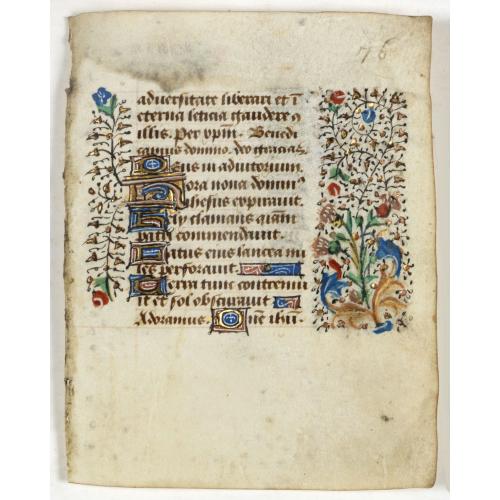 76
adversitate liberari et i
eterna leticia gaudere
illis. Per xpm. Benedi
camus domino. deo gracias
Deus in adiutorium.
Hora nona domin
Ihesus expiravit.
Hely clamans
patri commendavit.
Latus eius lancea mi
les perforavit
Terra tunc contremu
it et sol obscuravit
Adoramus. Dne ihu.